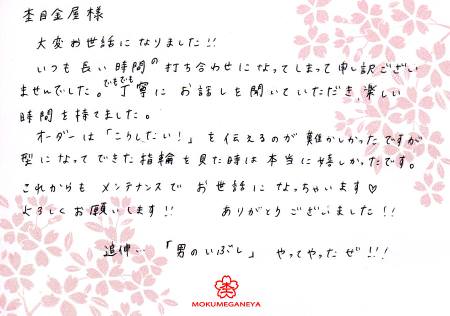 杢目金屋様
大変お世話になりました!!
いつも長い時間の打ち合わせになってしまって申し訳ござい
ませんでした。でもでも丁寧にお話しを聞いていただき、楽しい
時間を持てました。
オーダーは「こうしたい!」を伝えるのが難しかったですが
型になってできた指輪を見た時は本当に嬉しかったです。
これからもメンテナンスでお世話になっちゃいます♡
よろしくお願いします!! ありがとうございました!!
追伸…「男のいぶし」やってやったぜ!!!
MOKUMEGANEYA